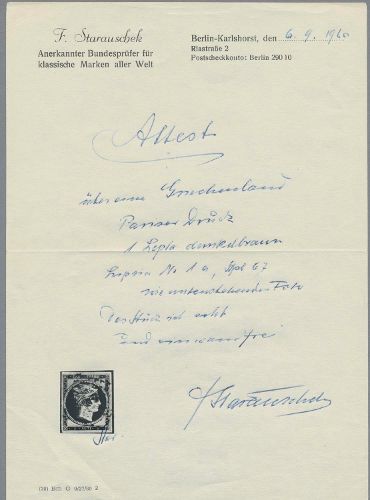 F. Starauschek
Anerkannter Bundesprüfer für
klassische Marken aller Welt
Berlin-Karlshorst, den 6. 9. 1960
Riastraße 2
Postscheckkonto: Berlin 290 10
Attest
über eine Griechenland
Pariser Druck
1 Lepta dunkelbraun
Lipsia No 1a, Spl 67
wie untenstehendes Foto
Das Stück ist echt
und einwandfrei
F Starauschek
Star.